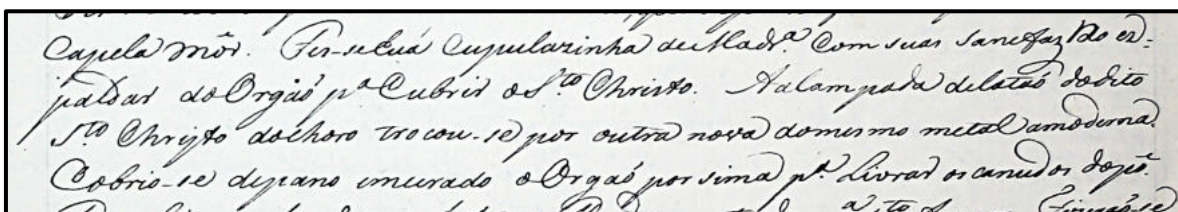 Capela mór. Fes-se huá Cupulazinha de Madr.ª Com suas Sanefaz No es-
paldar do Orgaõ p.ª Cubrir o S.to Christo. A alampada de lataõ do dito
S.to Christo do choro trocou-se por outra nova do mesmo metal a moderna.
Cobrio-se de pano encerado o Orgaõ por sima p.ª Livrar os canudos do pó.
Fingiraõ-se